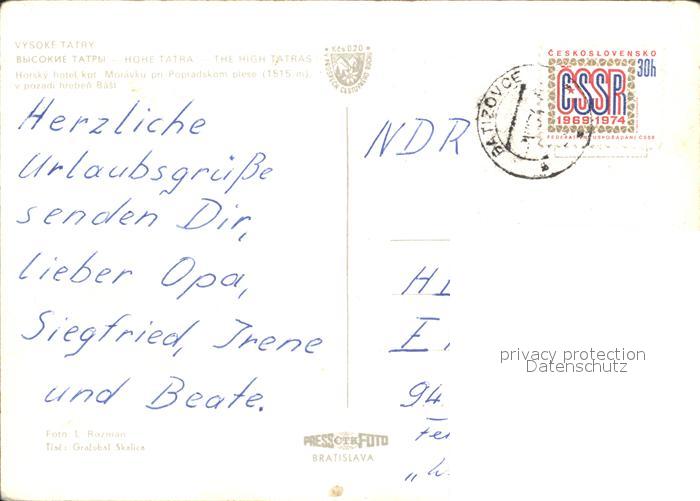 VYSOKÉ TATRY
ВЫСОКИЕ ТАТРЫ — HOHE TATRA — THE HIGH TATRAS
Horský hotel kpt. Morávku pri Popradskom plese (1515 m),
v pozadí hrebeň Bášt
Kčs 0,20
Herzliche
Urlaubsgrüße
senden Dir,
lieber Opa,
Siegfried, Irene
und Beate.
Foto: L. Rozman
Tlač: Gražobal Skalica
PRESSFOTO
BRATISLAVA
ČESKOSLOVENSKO
30h
ČSSR
1969-1974
FEDERATIVNÍ USPOŘÁDÁNÍ ČSSR
BATIZOVCE
NDR
H
E
94
privacy protection
Datenschutz